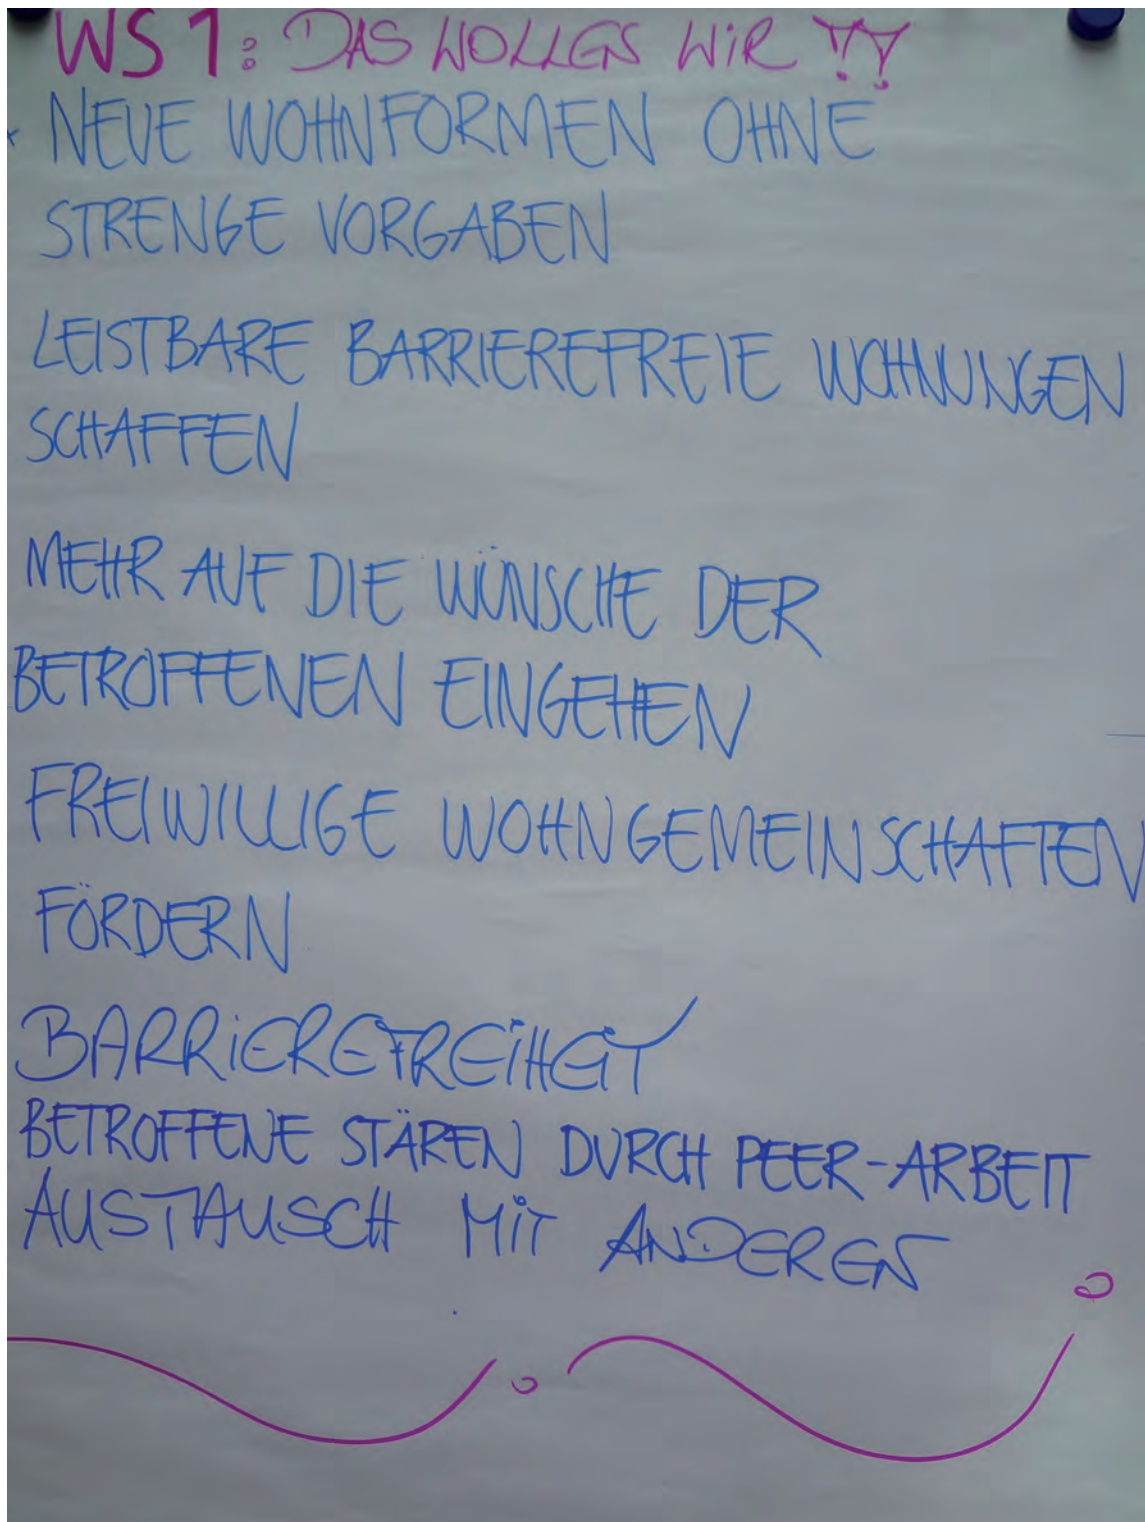 WS 1: DAS WOLLEN WiR !!
NEUE WOHNFORMEN OHNE
STRENGE VORGABEN
LEISTBARE BARRIEREFREIE WOHNUNGEN
SCHAFFEN
MEHR AUF DIE WÜNSCHE DER
BETROFFENEN EINGEHEN
FREIWILLIGE WOHNGEMEINSCHAFTEN
FÖRDERN
BARRiEREFREiHEiT
BETROFFENE STÄREN DURCH PEER-ARBEIT
AUSTAUSCH MiT ANDEREN